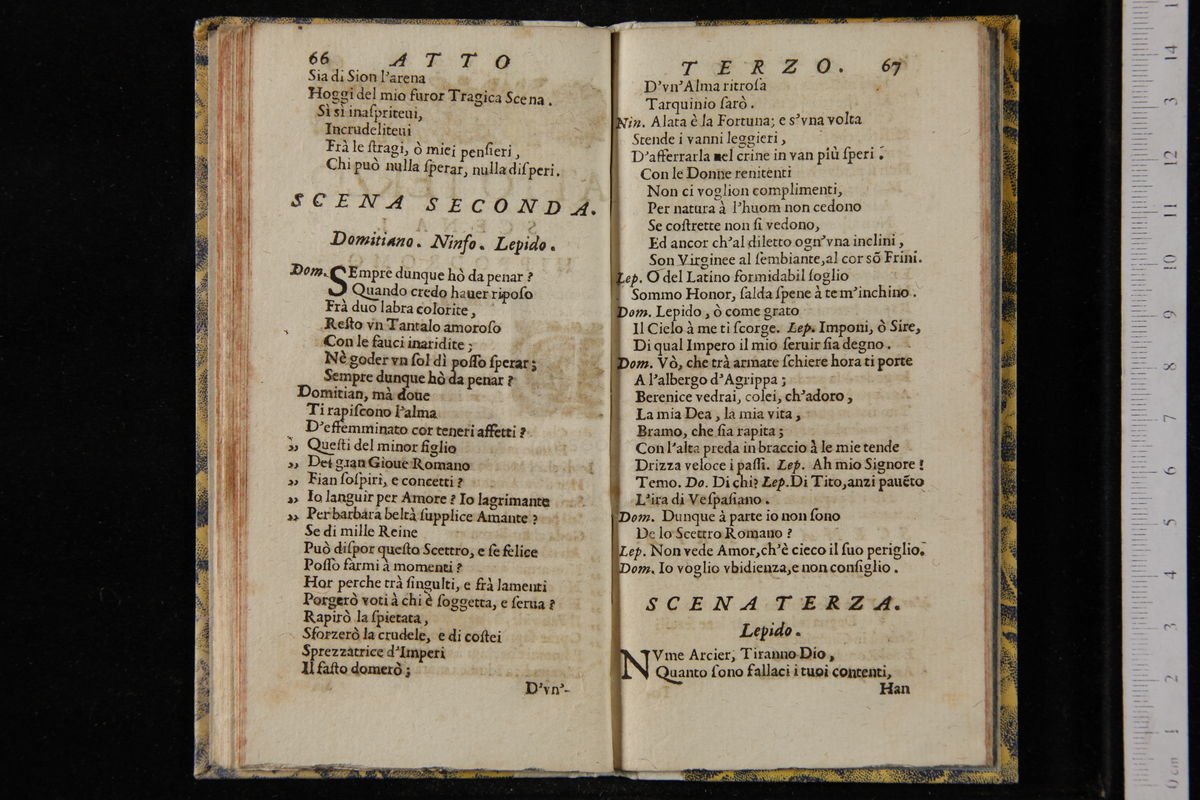 66 ATTO
Sia di Sion l'arena
Hoggi del mio furor Tragica Scena.
Sì sì inaſpriteui,
Incrudeliteui
Frà le ſtragi, ò miei penſieri,
Chi può nulla ſperar, nulla diſperi.
SCENA SECONDA.
Domitiano. Ninfo. Lepido.
Dom. SEmpre dunque hò da penar?
Quando credo hauer ripoſo
Frà duo labra colorite,
Reſto vn Tantalo amoroſo
Con le fauci inaridite;
Nè goder vn ſol dì poſſo ſperar;
Sempre dunque hò da penar?
Domitian, mà doue
Ti rapiſcono l'alma
D'effemminato cor teneri affetti?
„ Queſti del minor figlio
„ Del gran Gioue Romano
„ Fian ſoſpiri, e concetti?
„ Io languir per Amore? Io lagrimante
„ Per barbara beltà ſupplice Amante?
Se di mille Reine
Può diſpor queſto Scettro, e ſe felice
Poſſo farmi à momenti?
Hor perche trà ſingulti, e frà lamenti
Porgerò voti à chi è ſoggetta, e ſerua?
Rapirò la ſpietata,
Sforzerò la crudele, e di coſtei
Sprezzatrice d'Imperi
Il faſto domerò;
D'vn'-
TERZO. 67
D'vn'Alma ritroſa
Tarquinio ſarò.
Nin. Alata è la Fortuna; e s'vna volta
Stende i vanni leggieri,
D'afferrarla nel crine in van più ſperi.
Con le Donne renitenti
Non ci voglion complimenti,
Per natura à l'huom non cedono
Se coſtrette non ſi vedono,
Ed ancor ch'al diletto ogn'vna inclini,
Son Virginee al ſembiante, al cor sõ Frini.
Lep. O del Latino formidabil ſoglio
Sommo Honor, ſalda ſpene à te m'inchino.
Dom. Lepido, ò come grato
Il Cielo à me ti ſcorge. Lep. Imponi, ò Sire,
Di qual Impero il mio ſeruir ſia degno.
Dom. Vò, che trà armate ſchiere hora ti porte
A l'albergo d'Agrippa;
Berenice vedrai, colei, ch'adoro,
La mia Dea, la mia vita,
Bramo, che ſia rapita;
Con l'alta preda in braccio à le mie tende
Drizza veloce i paſſi. Lep. Ah mio Signore!
Temo. Do. Di chi? Lep. Di Tito, anzi pauẽto
L'ira di Veſpaſiano.
Dom. Dunque à parte io non ſono
De lo Scettro Romano?
Lep. Non vede Amor, ch'è cieco il ſuo periglio.
Dom. Io voglio vbidienza, e non conſiglio.
SCENA TERZA.
Lepido.
NVme Arcier, Tiranno Dio,
Quanto ſono fallaci i tuoi contenti,
Han
14
13
12
11
10
9
8
7
6
5
4
3
2
1
0 cm